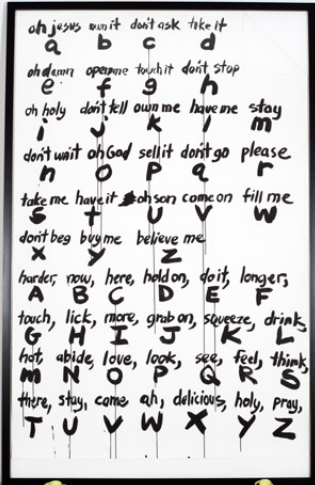 oh jesus own it don't ask take it
a b c d
oh damn open me touch it don't stop
e f g h
oh holy don't tell own me have me stay
i j k l m
don't wait oh God sell it don't go please
n o p q r
take me have it oh son come on fill me
s t u v w
don't beg buy me believe me
x y z
harder, now, here, hold on, do it, longer,
A B C D E F
touch, lick, more, grab on, squeeze, drink,
G H I J K L
hot, abide, love, look, see, feel, think,
m N O P Q R S
there, stay, come ah, delicious, holy, pray,
T U V W X Y Z